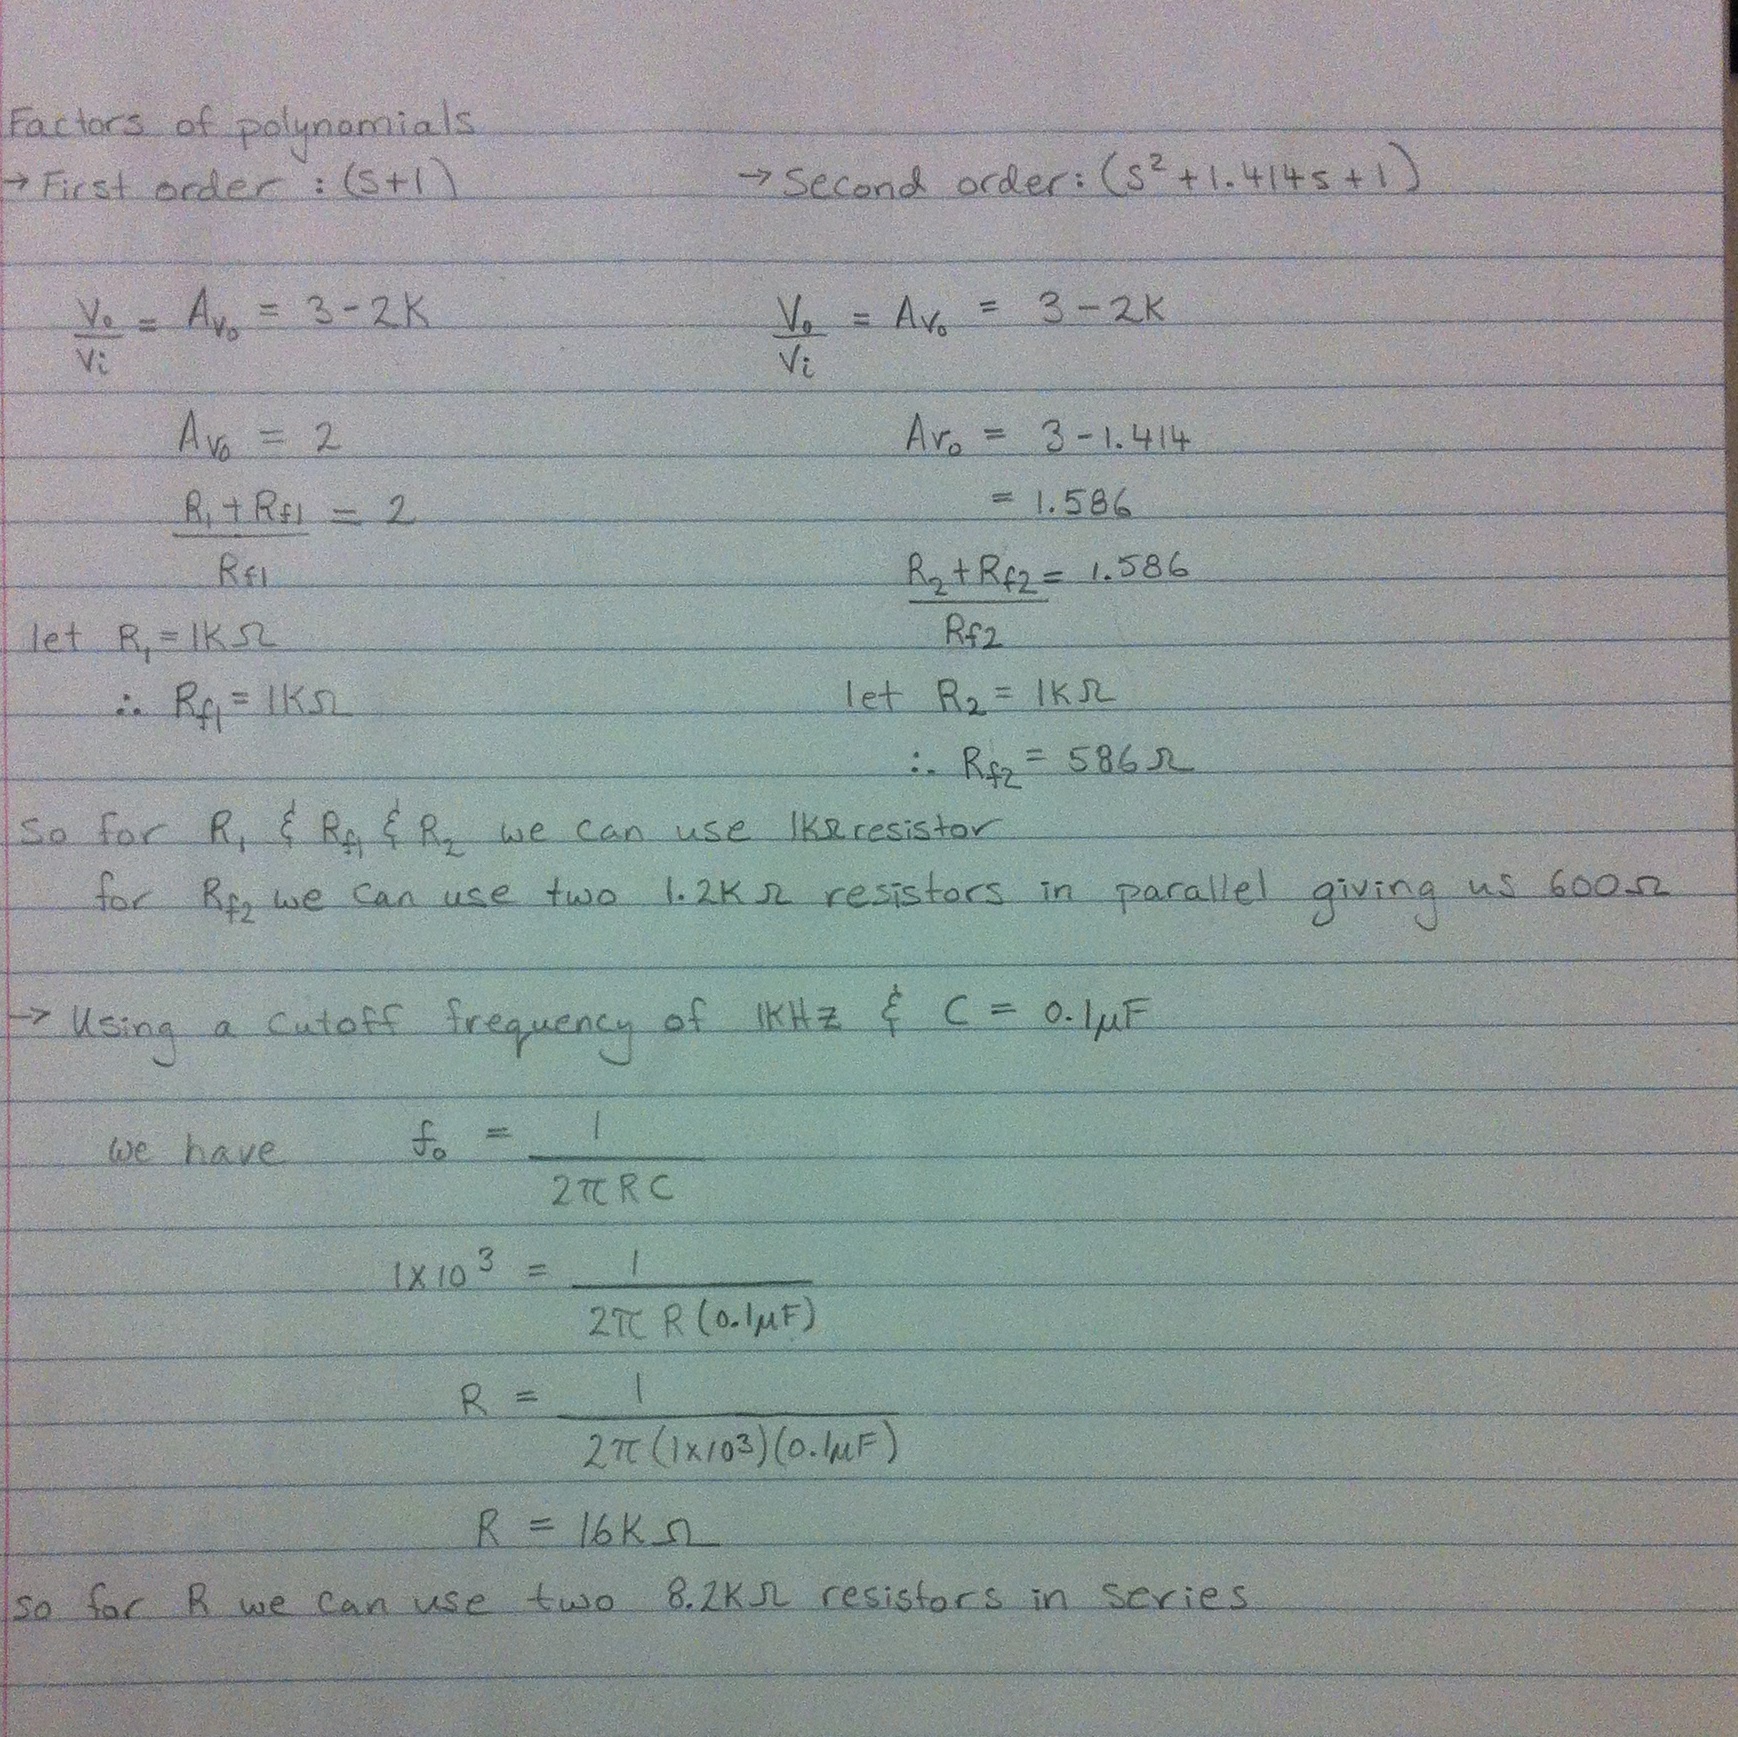 Factors of polynomials
→ First order : (s+1)
→ Second order: (s² + 1.414s + 1)
Vo/Vi = Avo = 3 - 2K
Avo = 2
R1 + Rf1 / Rf1 = 2
let R1 = 1KΩ
∴ Rf1 = 1KΩ
Vo/Vi = Avo = 3 - 2K
Avo = 3 - 1.414
= 1.586
R2 + Rf2 / Rf2 = 1.586
let R2 = 1KΩ
∴ Rf2 = 586Ω
So for R1 & Rf1 & R2 we can use 1KΩ resistor
for Rf2 we can use two 1.2KΩ resistors in parallel giving us 600Ω
→ Using a cutoff frequency of 1KHz & C = 0.1μF
we have fo = 1 / 2πRC
1×10³ = 1 / 2π R (0.1μF)
R = 1 / 2π (1×10³)(0.1μF)
R = 16KΩ
so for R we can use two 8.2KΩ resistors in series